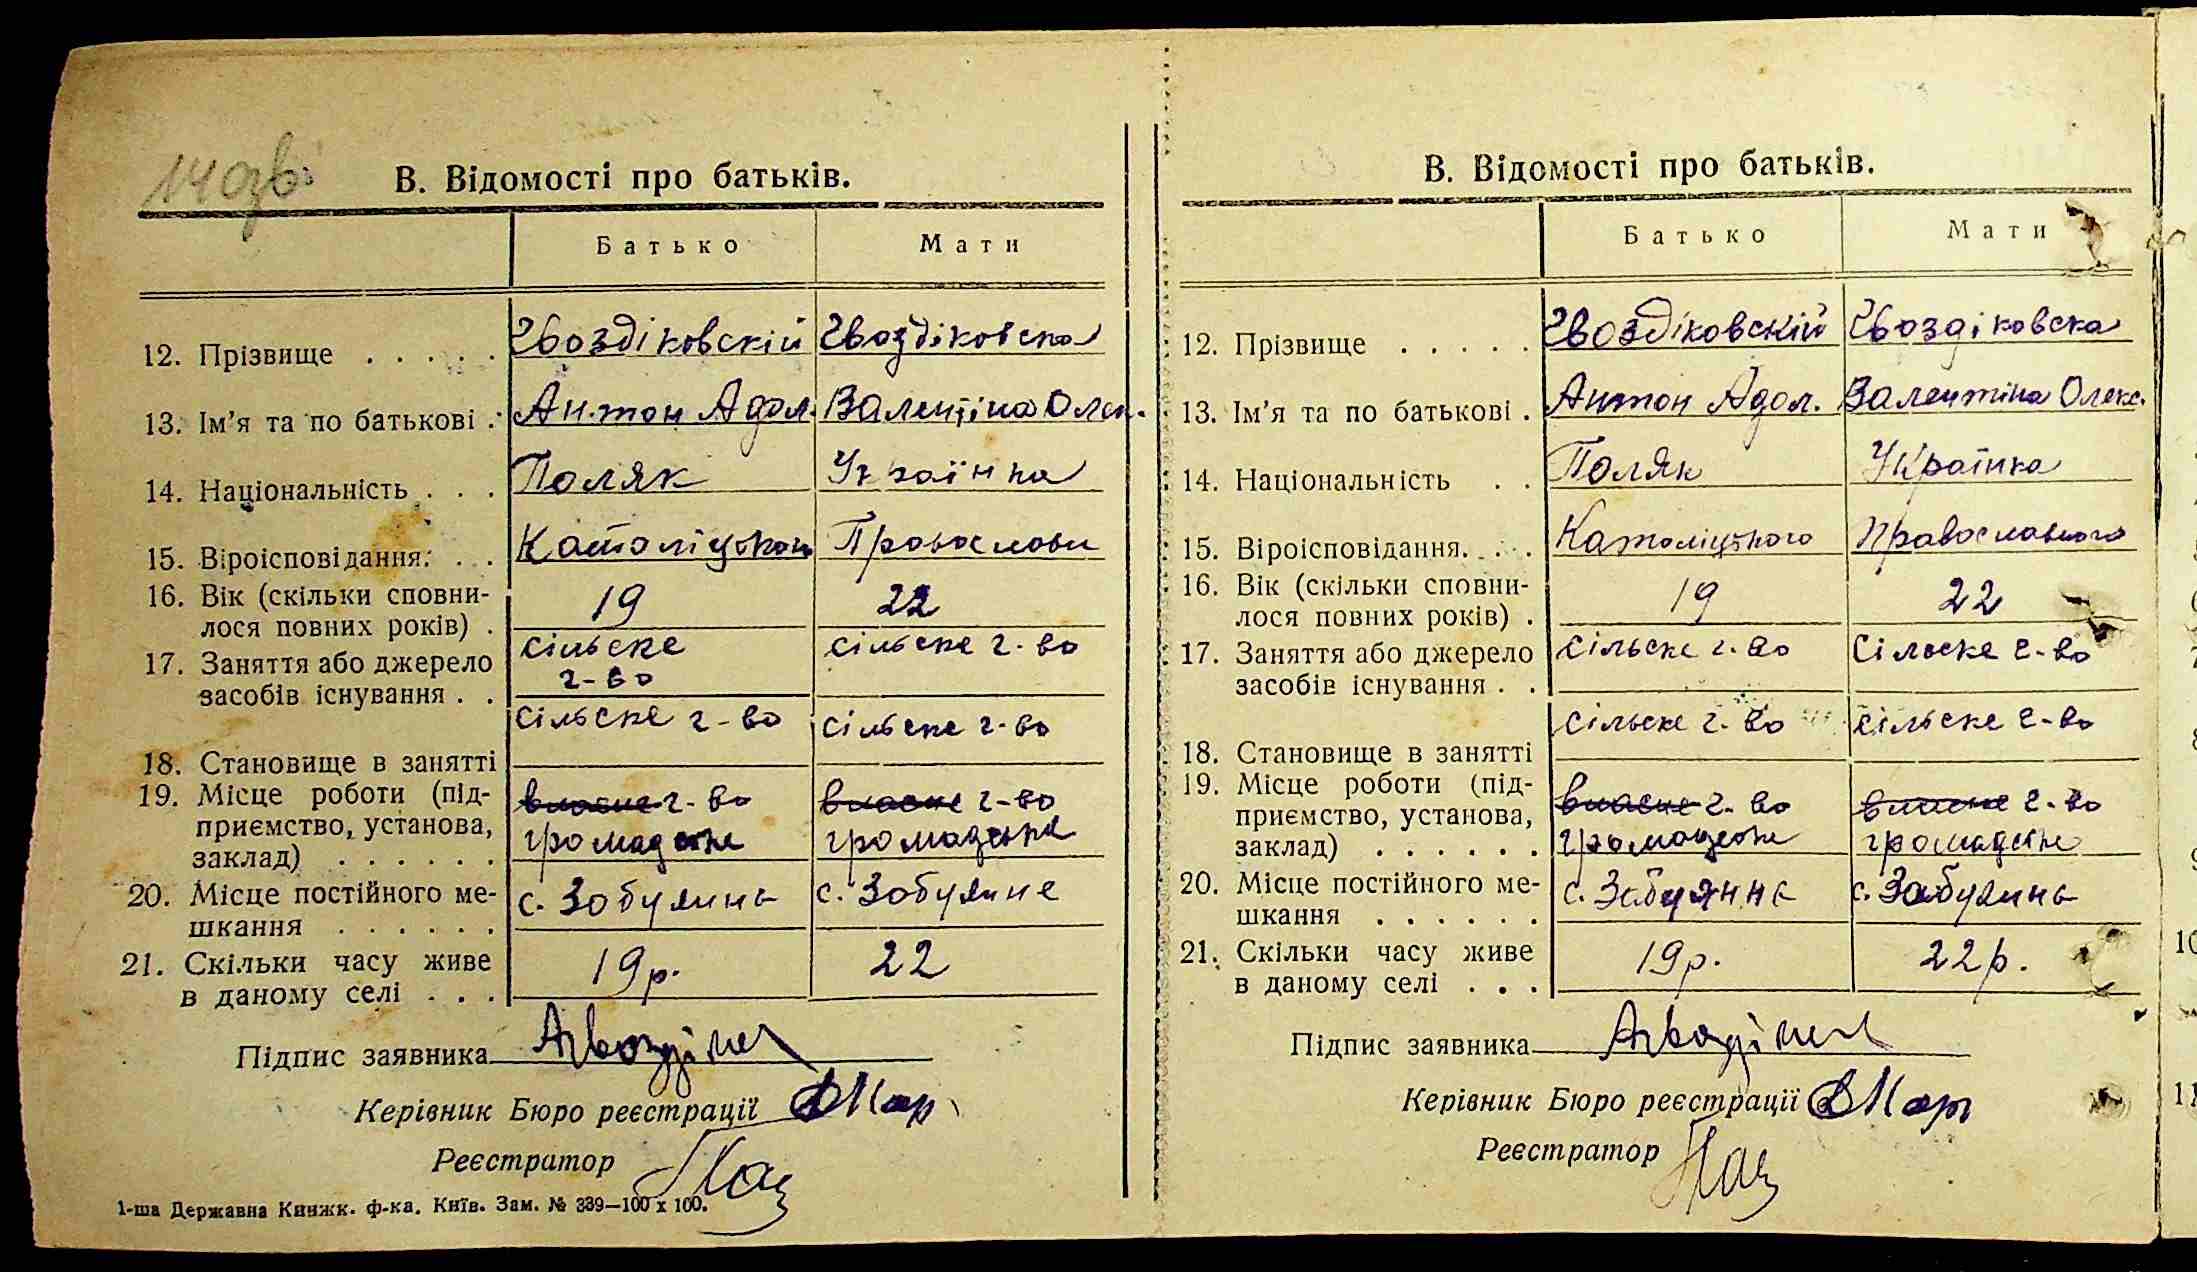 В. Відомості про батьків.
Батько Мати
12. Прізвище . . . . . Гвоздіковскій Гвоздіковска
13. Ім'я та по батькові . Антон Адол. Валентіна Олек.
14. Національність . . . Поляк Українка
15. Віроісповідання. . . Католіцького Православн
16. Вік (скільки сповни-
лося повних років) . 19 22
17. Заняття або джерело сільске сільске г-во
засобів існування . . г-во
сільске г-во сільске г-во
18. Становище в занятті
19. Місце роботи (під- власне г-во власне г-во
приємство, установа, громадське громадське
заклад) . . . . . .
20. Місце постійного ме- с. Забуяннь с. Забуянне
шкання . . . . . .
21. Скільки часу живе 19р. 22
в даному селі . . .
Підпис заявника
Керівник Бюро реєстрації
Реєстратор
1-ша Державна Книжк. ф-ка. Київ. Зам. № 339—100 х 100.
В. Відомості про батьків.
Батько Мати
12. Прізвище . . . . . Гвоздіковскій Гвоздіковска
13. Ім'я та по батькові . Антон Адол. Валентіна Олекс.
14. Національність . . Поляк Українка
15. Віроісповідання. . . Католіцького Православного
16. Вік (скільки сповни-
лося повних років) . 19 22
17. Заняття або джерело сільске г-во сільске г-во
засобів існування . .
сільске г-во сільске г-во
18. Становище в занятті
19. Місце роботи (під- власне г-во власне г-во
приємство, установа, громадське громадске
заклад) . . . . . .
20. Місце постійного ме- с. Забуяннь с. Забуяннь
шкання . . . . . .
21. Скільки часу живе 19р. 22р.
в даному селі . . .
Підпис заявника
Керівник Бюро реєстрації
Реєстратор